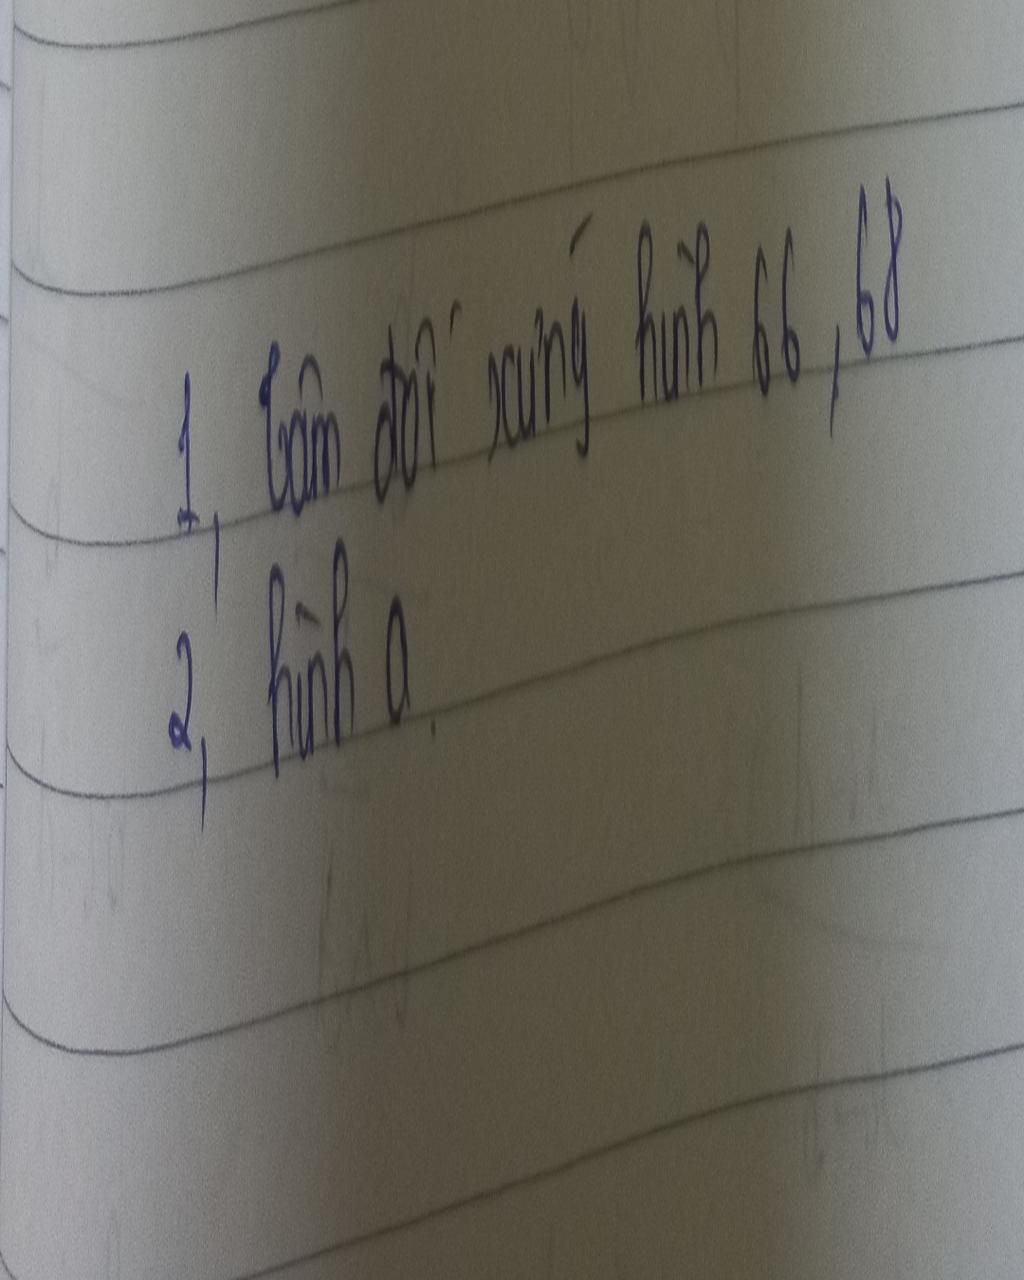 1, Tâm đối xứng hình 66, 68
2, hình a.